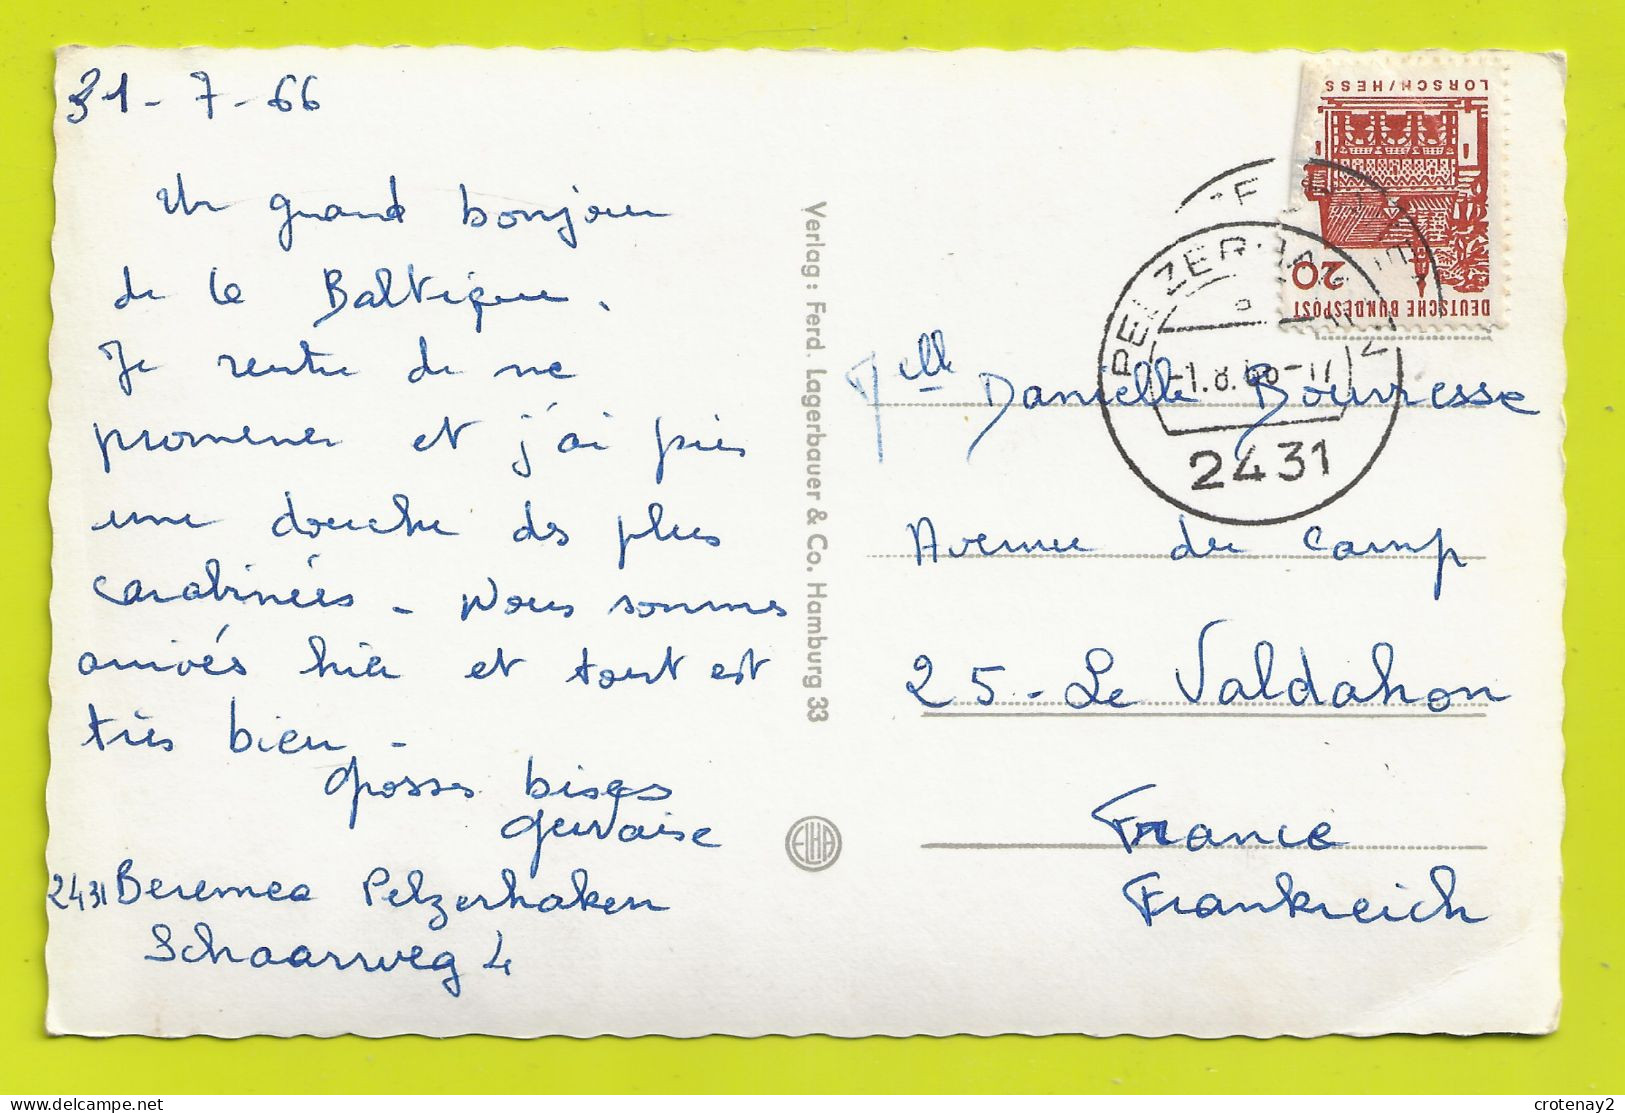 31-7-66
Un grand bonjour
de la Baltique.
Je rentre de me
promener et j'ai pris
une douche des plus
carabinées - Nous sommes
arrivés hier et tout est
très bien -
Grosses bises
Gervaise
2431 Beremea Pelzerhaken
Schaarweg 4
Verlag: Ferd. Lagerbauer & Co. Hamburg 33
ELHA
LORSCH/HESS
20
DEUTSCHE BUNDESPOST
PELZERHAKEN
-1.8.66-17
2431
Melle Danielle Bourresse
Avenue du Camp
25-Le Valdahon
France
Frankreich
crotenay2